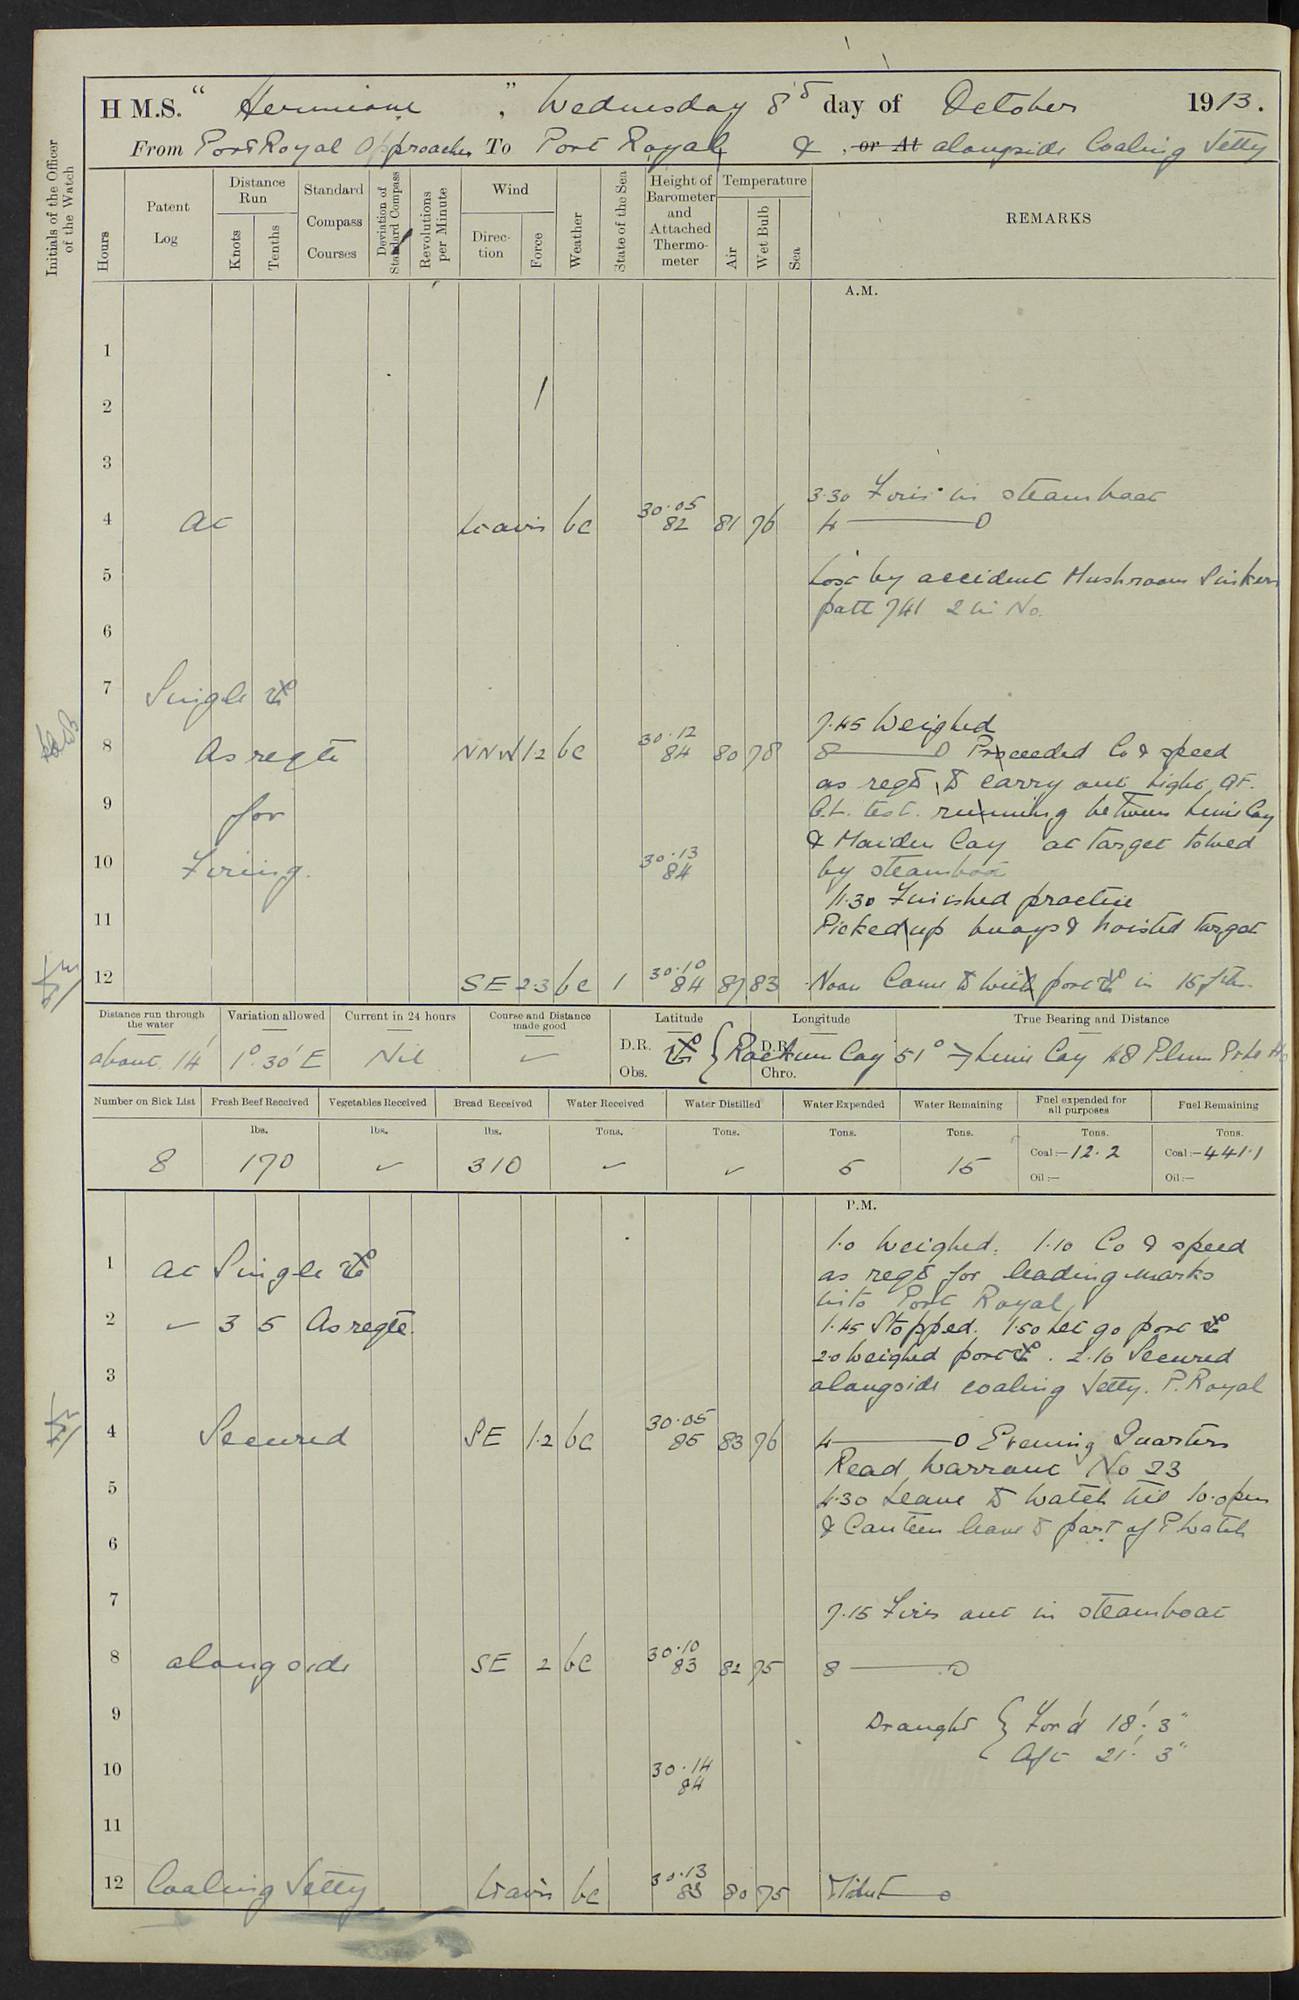 H.M.S. "Hermione", Wednesday 8th day of October 1913.
From Port Royal Approaches To Port Royal & , or At alongside Coaling Jetty
Initials of the Officer of the Watch
Hours
Patent Log
Distance Run
Knots
Tenths
Standard Compass Courses
Deviation of Standard Compass
Revolutions per Minute
Wind
Direction
Force
Weather
State of the Sea
Height of Barometer and Attached Thermometer
Temperature
Air
Wet Bulb
Sea
REMARKS
A.M.
1
2
3
3.30 Fires in steamboat
4 At Lt airs bc 30.05 82 81 76 4 ———0
5 Lost by accident Mushroom Sinkers
patt 741 2 in No.
6
7 Single
7.45 Weighed
8 As reqte NNW 1.2 bc 30.12 84 80 78 8 ———0 Proceeded Co & speed
as reqd to carry out Light QF.
9 for
G.L. test. running between Lime Cay
& Maiden Cay at target towed
10 Firing. 30.13 84 by steamboat
11.30 Finished practice
11 Picked up buoys & hoisted target
12 SE 2.3 bc 1 30.10 84 87 83 Noon Came to with port in 15 fm.
Distance run through the water
Variation allowed
Current in 24 hours
Course and Distance made good
Latitude
Longitude
True Bearing and Distance
about 14' 1° 30' E Nil ✓ D.R. Obs. D.R. Chro. { Rackum Cay 51° Lime Cay 48 Plum Pt Lt Ho
Number on Sick List
Fresh Beef Received
Vegetables Received
Bread Received
Water Received
Water Distilled
Water Expended
Water Remaining
Fuel expended for all purposes
Fuel Remaining
lbs. lbs. lbs. Tons. Tons. Tons. Tons. Tons. Tons.
8 170 ✓ 310 ✓ ✓ 5 15 Coal:—12.2 Coal:—441.1
Oil:— Oil:—
P.M.
1.0 Weighed. 1.10 Co & speed
1 At Single as reqd for leading marks
into Port Royal
2 ✓ 3 5 As reqte. 1.45 Stopped. 1.50 Let go port
2.0 Weighed port. 2.10 Secured
3 alongside coaling Jetty. P. Royal
4 Secured SE 1.2 bc 30.05 85 83 76 4 ———0 Evening Quarters
Read Warrant No 23
5 4.30 Leave to watch till 10.0 pm
& Canteen leave to part of P watch
6
7 7.15 Fires out in steamboat
8 alongside SE 2 bc 30.10 83 82 75 8 ———0
9 Draught { For'd 18'. 3"
Aft 21'. 3"
10 30.14 84
11
12 Coaling Jetty Lt airs bc 30.13 83 80 75 Midnt ——0